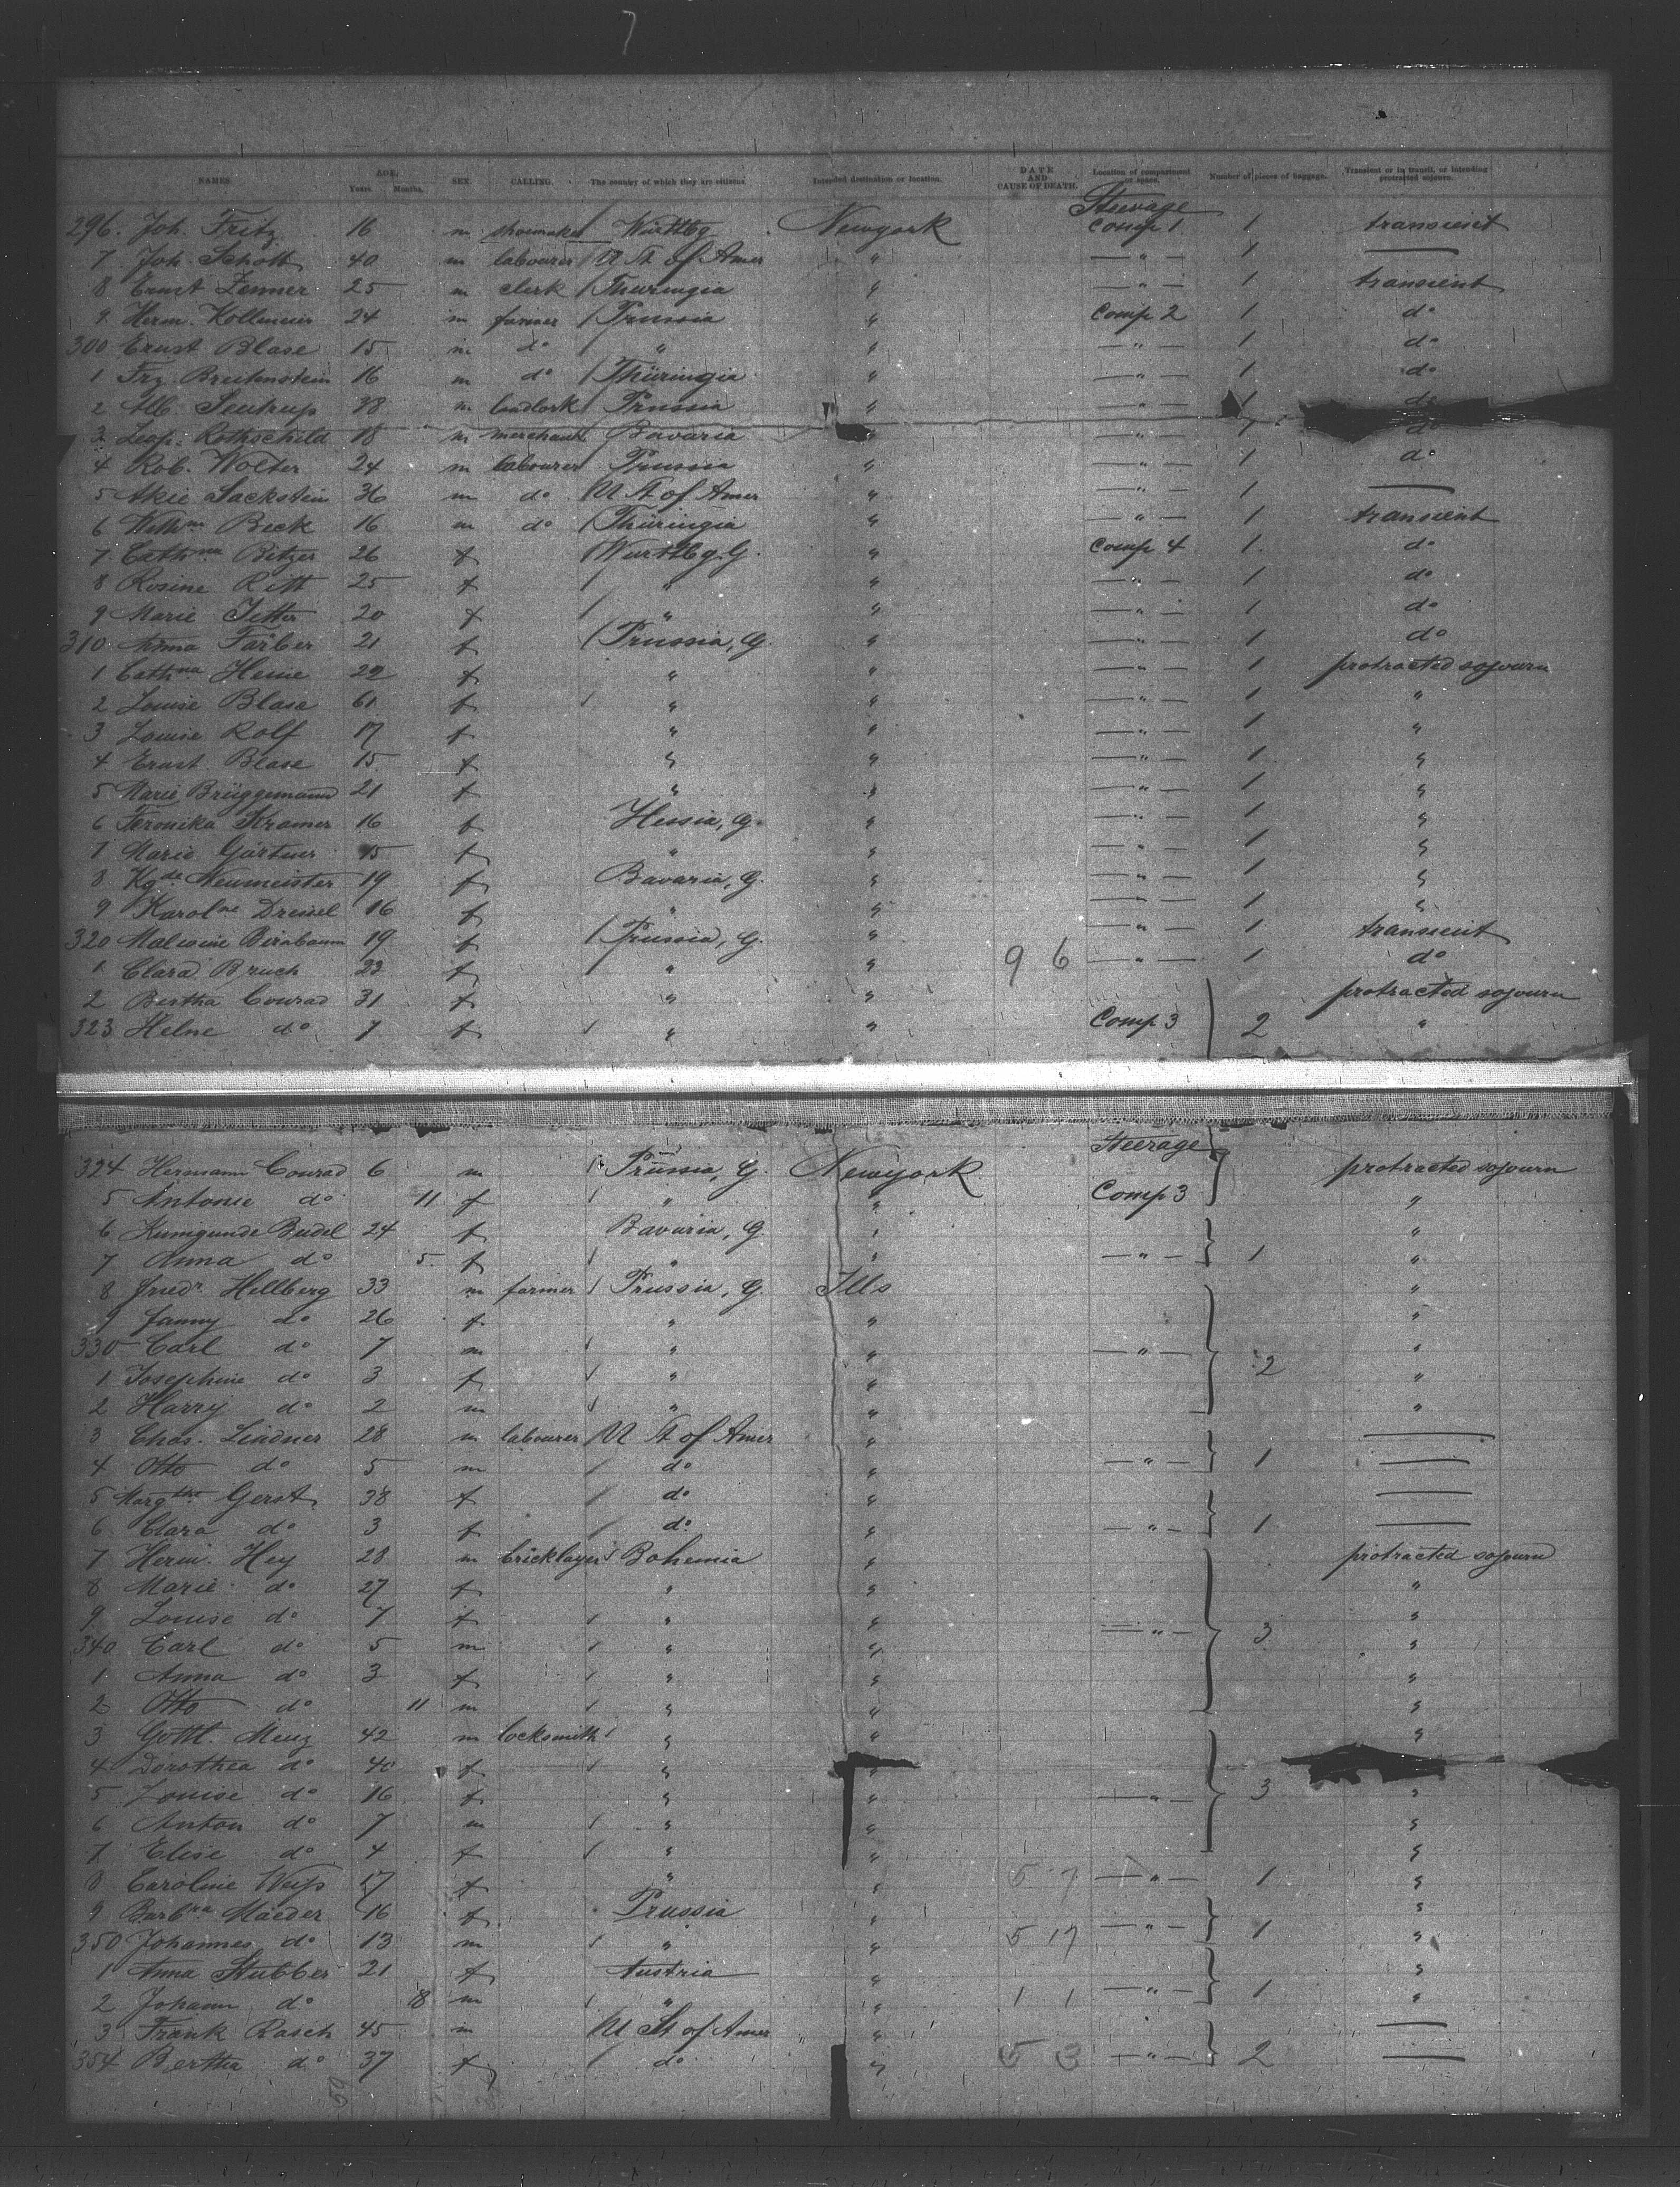 NAMES. AGE. Years. Months. SEX. CALLING. The country of which they are citizens. Intended destination or location. DATE AND CAUSE OF DEATH. Location of compartment or space. Number of pieces of baggage. Transient or in transit, or intending protracted sojourn.
Steerage
296. Joh. Fritz 16 m shoemaker Württbg Newyork Comp 1 1 transient
7 Joh. Schott 40 m labourer U St of Amer " — " — 1 —
8 Ernst Zenner 25 m clerk Thuringia " — " — 1 transient
9. Herm. Kollmeier 24 m farmer Prussia " Comp 2 1 do
300 Ernst Blase 15 m do " " — " — 1 do
1 Frz. Breitenstein 16 m do Thüringia " — " — 1 do
2 Alb. Sentrup 38 m Prussia " — " — 1 do
3 Leop. Rothschild 18 m merchant Bavaria " — " — 1 do
4 Rob. Wolter 24 m labourer Prussia " — " — 1 do
5 Akie Sackstein 36 m do U St of Amer " — " — 1 —
6 Wilhm Beck 16 m do Thüringia " — " — 1 transient
7 Cathna Bitzer 26 f Wurttbg. G. " Comp 4 1. do
8 Rosine Rett 25 f " " — " — 1 do
9 Marie Jetter 20 f " " — " — 1 do
310 Anna Färber 21 f Prussia, G. " — " — 1 do
1 Cathna Heine 22 f " " — " — 1 protracted sojourn
2 Louise Blase 61 f " " — " — 1 "
3 Louise Rolf 17 f " " — " — 1 "
4 Ernst Blase 15 f " " — " — 1 "
5 Marie Brüggemann 21 f " " — " — 1 "
6 Feronika Kramer 16 f Hessia, G. " — " — 1 "
7 Marie Gärtner 15 f " " — " — 1 "
8 Kgde Neumeister 19 f Bavaria, G. " — " — 1 "
9 Karolne Dressel 16 f " " — " — 1 "
320 Malwine Birnbaum 19 f Prussia, G. " — " — 1 transient
1 Clara Bruch 23 f " " 9 6 — " — 1 do
2 Bertha Conrad 31 f " " protracted sojourn
323 Helne do 7 f " " Comp 3 2 "
Steerage
324 Hermann Conrad 6 m Prussia, G. Newyork protracted sojourn
5 Antonie do 11 f " " Comp 3 "
6 Kunigunde Budel 24 f Bavaria, G. " "
7 Anna do 5 f " " — " — 1 "
8 Friedr. Hellberg 33 m farmer Prussia, G. Ills "
9 Fanny do 26 f " " "
330 Carl do 7 m " " — " — "
1 Josephine do 3 f " " 2 "
2 Harry do 2 m " " "
3 Chas. Lindner 28 m labourer U St of Amer " —
4 Otto do 5 m do " — " — 1 —
5 Margthe Gerst 38 f do " —
6 Clara do 3 f do " — " — 1 —
7 Herm. Hey 28 m bricklayer Bohemia " protracted sojourn
8 Marie do 27 f " " "
9 Louise do 7 f " " "
340 Carl do 5 m " " — " — 3 "
1 Anna do 3 f " " "
2 Otto do 11 m " " "
3 Gottl. Menz 42 m locksmith " " "
4 Dorothea do 40 f " "
5 Louise do 16 f " " — " — 3 "
6 Anton do 7 m " " "
7 Elise do 4 f " " "
8 Caroline Weiss 17 f " " 5 7 — " — 1 "
9 Barbra Maeder 16 f Prussia " "
350 Johannes do 13 m " " 5 17 — " — 1 "
1 Anna Stubber 21 f Austria " "
2 Johann do 8 m " " 1 1 — " — 1 "
3 Frank Rasch 45 m U St of Amer " —
354 Bertha do 37 f do " 5 3 — " — 2 —
59